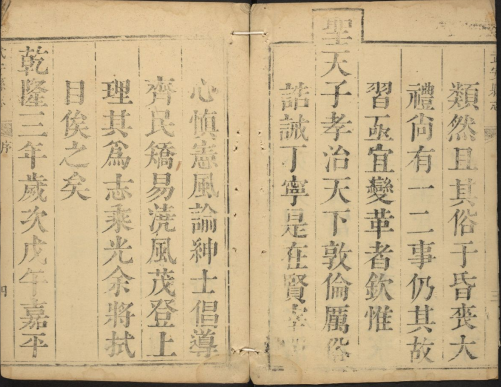 類然且其俗子昏喪大
禮尚有一二事仍其故
習亟宜變革者欽惟
聖天子孝治天下敦倫厲俗
誥誡丁寧是在賢宰
心慎憲風諭紳士倡導
齊民矯易澆風茂登上
理其爲志乘光余將拭
目俟之矣
乾隆三年歲次戊午嘉平
序
四